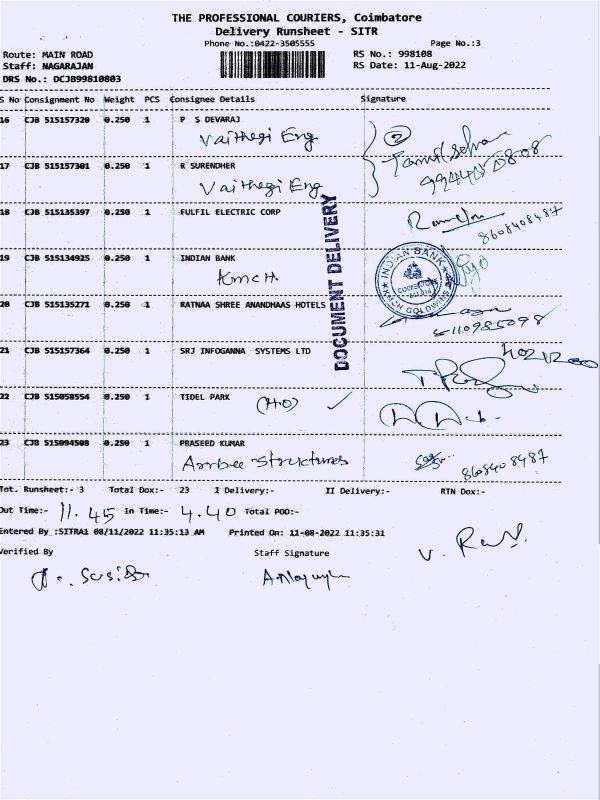 THE PROFESSIONAL COURIERS, Coimbatore
Delivery Runsheet - SITR
Phone No.:0422-3505555 Page No.:3
Route: MAIN ROAD RS No.: 998108
Staff: NAGARAJAN RS Date: 11-Aug-2022
DRS No.: DCJB99810803
S No Consignment No Weight PCS Consignee Details Signature
16 CJB 515157320 0.250 1 P S DEVARAJ
Vaithegi Eng
2
Tamilselvan
17 CJB 515157301 0.250 1 R SURENDHER
Vaithegi Eng
18 CJB 515135397 0.250 1 FULFIL ELECTRIC CORP
8608408487
19 CJB 515134925 0.250 1 INDIAN BANK
KMCH
INDIAN BANK
COIMBATORE
641 014
KMCH GOLDWINS
DOCUMENT DELIVERY
20 CJB 515135271 0.250 1 RATNAA SHREE ANANDHAAS HOTELS
21 CJB 515157364 0.250 1 SRJ INFOGANNA SYSTEMS LTD
22 CJB 515058554 0.250 1 TIDEL PARK
(H.O) ✓
23 CJB 515094508 0.250 1 PRASEED KUMAR
Arrbee Structures
8608408487
Tot. Runsheet:- 3 Total Dox:- 23 I Delivery:- II Delivery:- RTN Dox:-
Out Time:- 11.45 In Time:- 4.40 Total POD:-
Entered By :SITRA1 08/11/2022 11:35:13 AM Printed On: 11-08-2022 11:35:31
Verified By Staff Signature